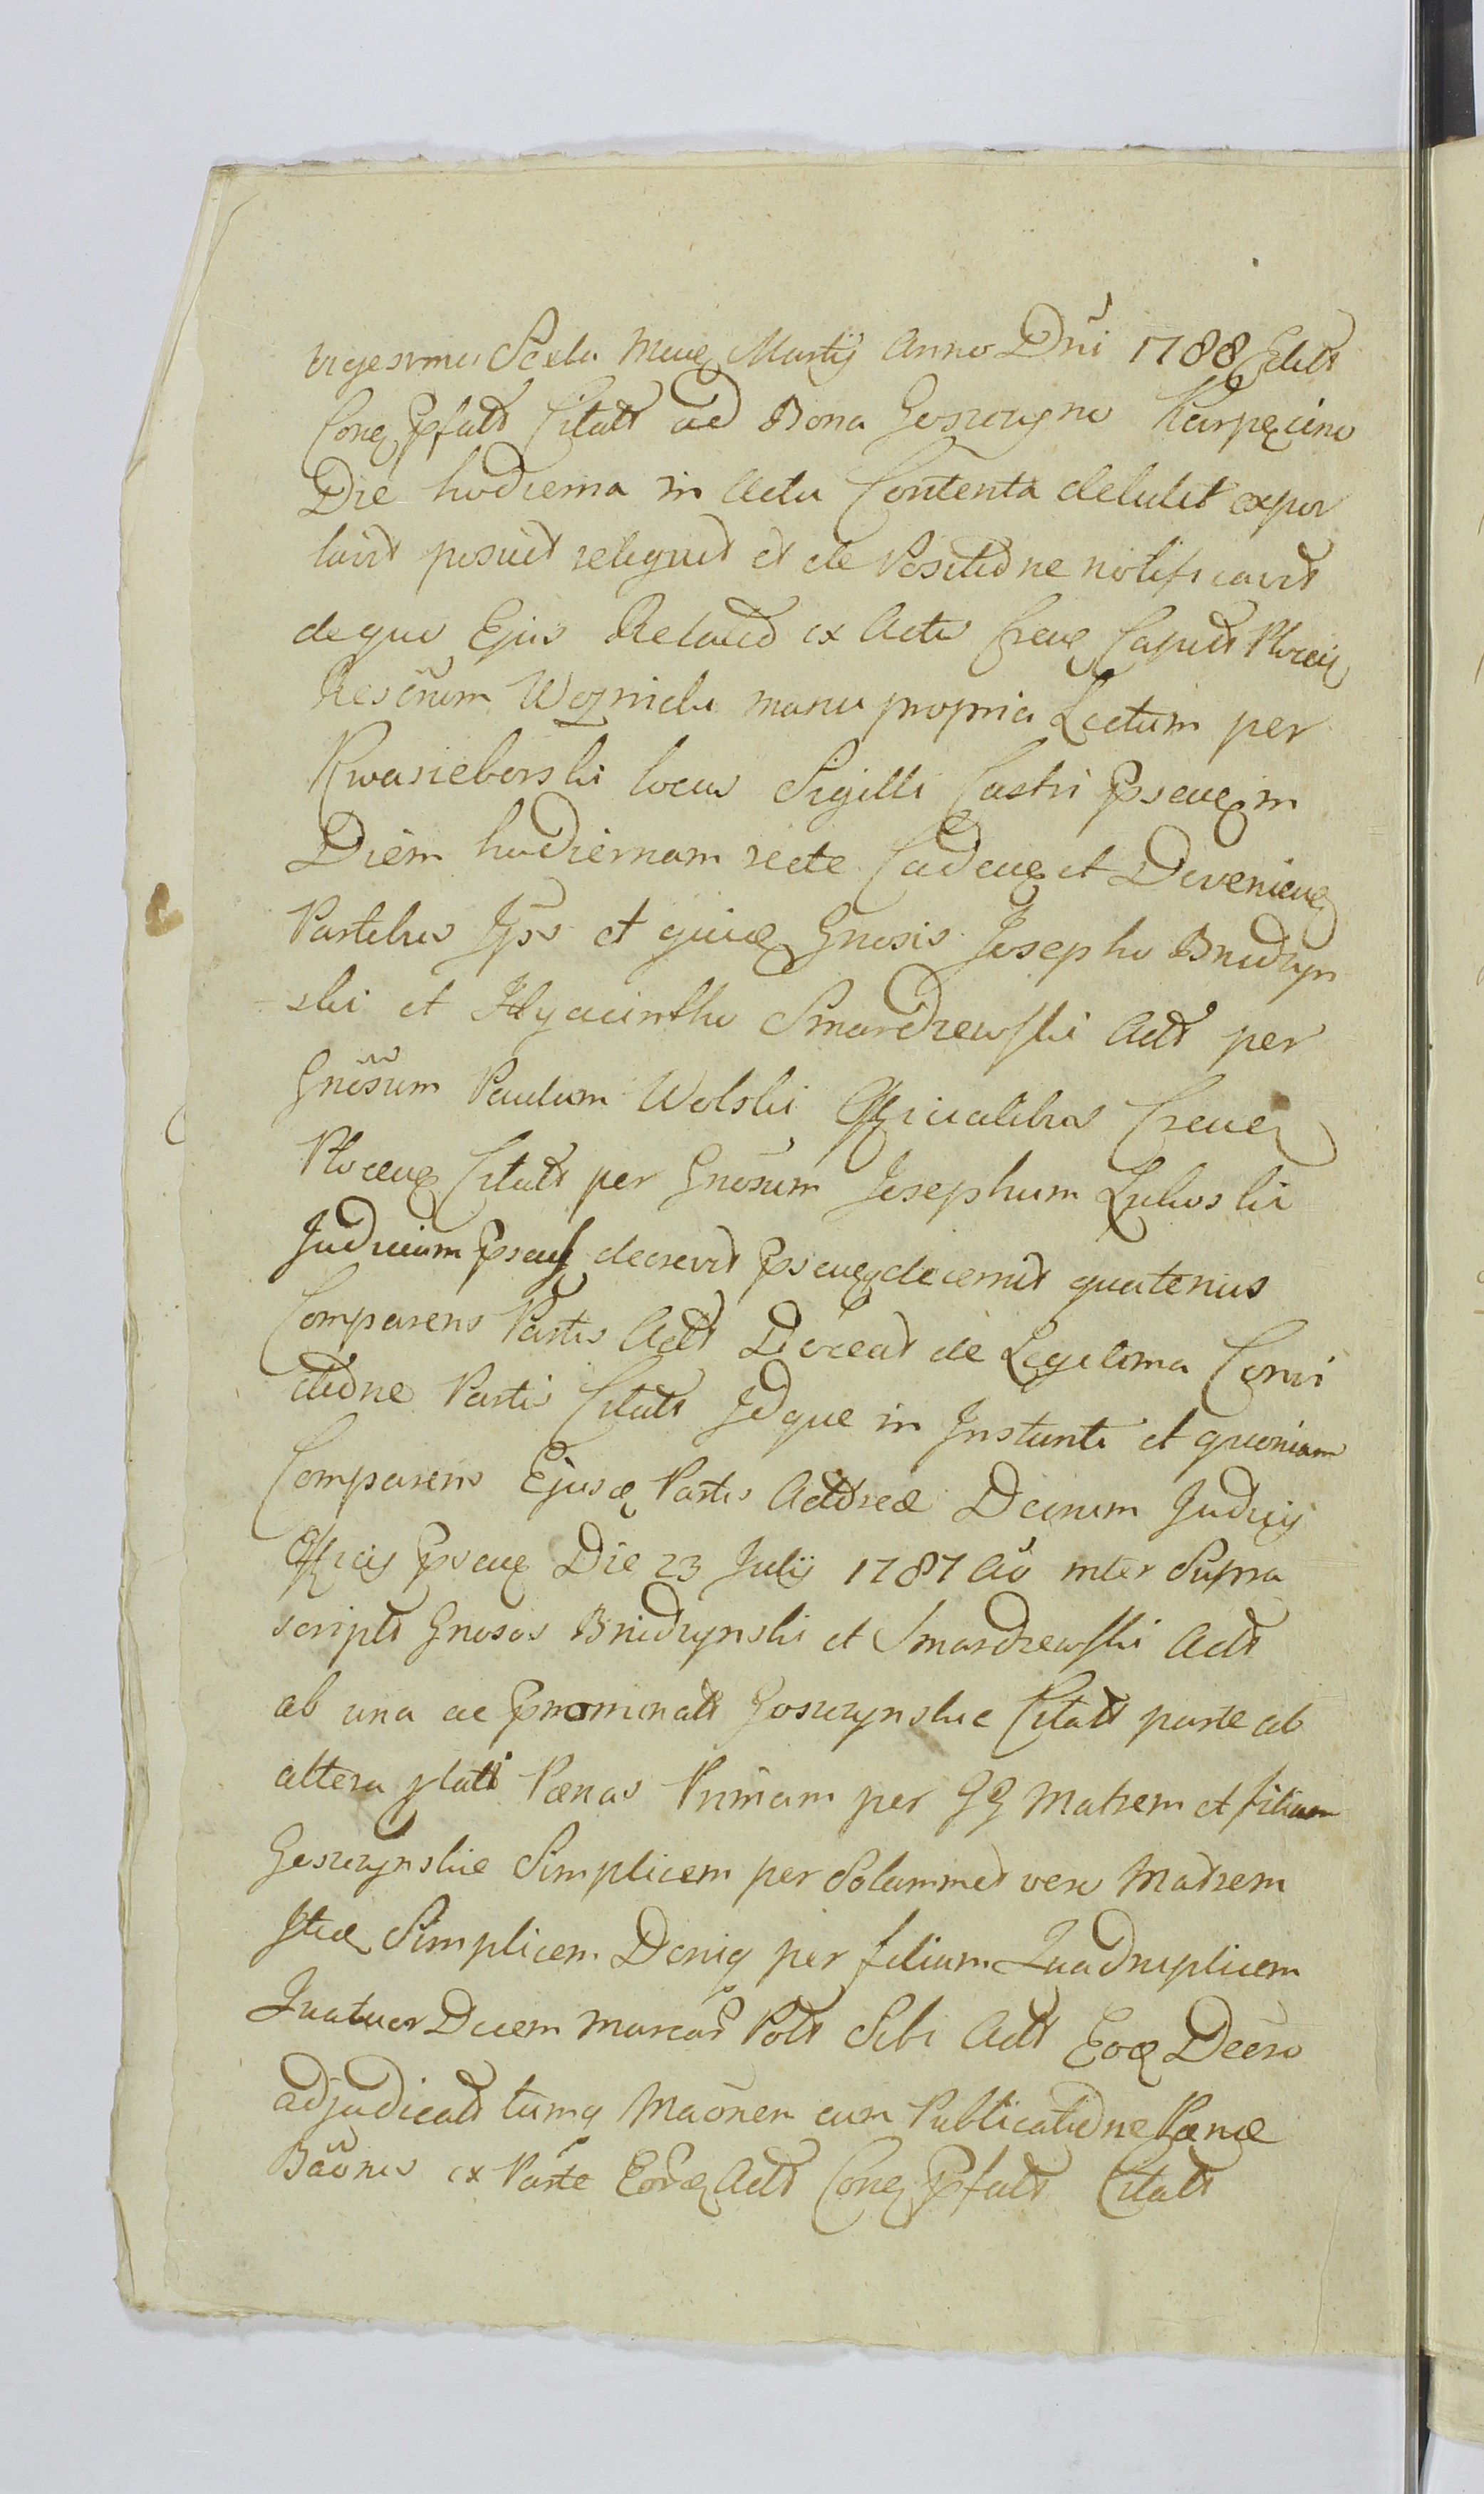 vigesima Sexta Mens Martij Anno Dni 1788 Edit
Cong Pfatt Citatt ad Bona Goszczyno Karpęcino
Die hodierna in Actu Contenta detulit expor
tavit posuit reliquit et de Positione notificavit
de quo Ejus Relatio ex Actis Creng Capitt Plocen
Rescrum Woznicki manu propria Lectum per
Kwasieborski locus Sigilli Castri Pseng in
Diem hodiernam recte Cadeng et Devenieng
Partibus Ipss et quidę Gnosis Josepho Bnidzyn
ski et Hyacintho Smardzewski Actt per
Gnosum Paulum Wolski Officialibus Creng
Ploceng Citatt per Gnosum Josephum Lukoski
Judicium Pseng decrevit Psengq decernit quatenus
Comparens Partis Actt Doceat de Legitima Convi
ctione Partis Citatt Idque in Instanti et quoniam
Comparens Ejusdę Partis Actoreæ Decrum Judicij
Officij Pseng Die 23 Julij 1787 Ao inter Supra
scriptt Gnosos Bnidzynski et Smardzewski Actt
ab una ac Pnominatt Goszczynskie Citatt parte ab
altera latt Pænas Primam per GG Matrem et filium
Goszczynskie Simplicem per Solammet vero Matrem
Itidę Simplicem Deniq per filium Quadruplicem
Quatuor Decem Marcar Polt Sibi Actt Eodę Decro
adjudicatt tumq Maonem cum Publicatione Pænæ
Baonis ex Parte Eorudę Actt Cong Pfatt Citatt